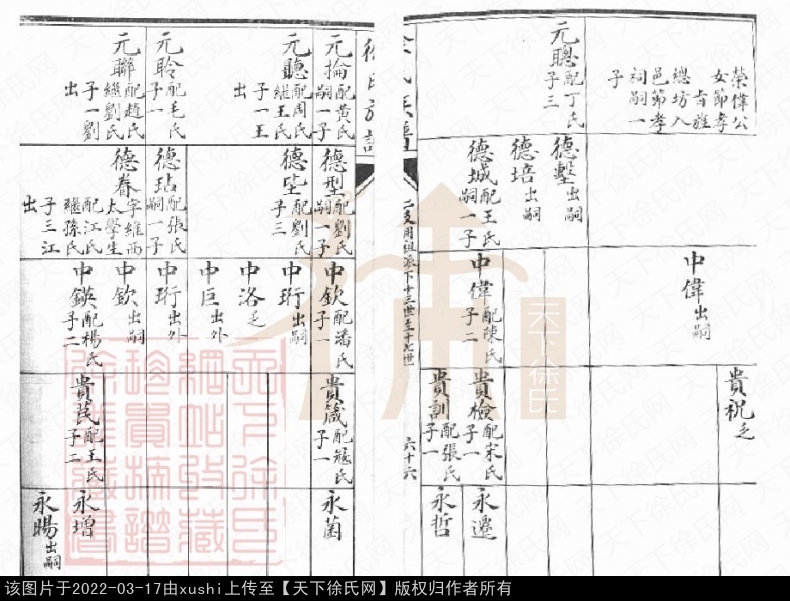 榮偉公
女節孝
旨旌
總坊入
邑節孝
祠嗣一
子
元聰配丁氏
子三
德墼出嗣
德培出嗣
德城配王氏
嗣一子
中偉出嗣
中偉配陳氏
子二
貴祝乏
貴檢配宋氏
子一
貴訓配張氏
子一
永遷
永哲
徐氏族譜
二支用祖派下十三世至十七世
六十六
元掄配黃氏
嗣一子
元聽配周氏
繼王氏
子一王
出
元聆配毛氏
子一
元聯配趙氏
繼劉氏
子一劉
出
德型配劉氏
嗣一子
德坒配劉氏
子三
德玷配張氏
嗣一子
德眷字維西
太學生
配江氏
繼孫氏
子三江
出
中欽配潘氏
子一
中珩出嗣
中洛乏
中巨出外
中珩出外
中欽出嗣
中鍈配楊氏
子二
貴箴配寇氏
子一
貴芪配王氏
子二
永菌
永增
永暘出嗣
天下徐氏
天下徐氏网站收藏
珍貴族譜
徐雁藏書
该图片于2022-03-17由xushi上传至【天下徐氏网】版权归作者所有